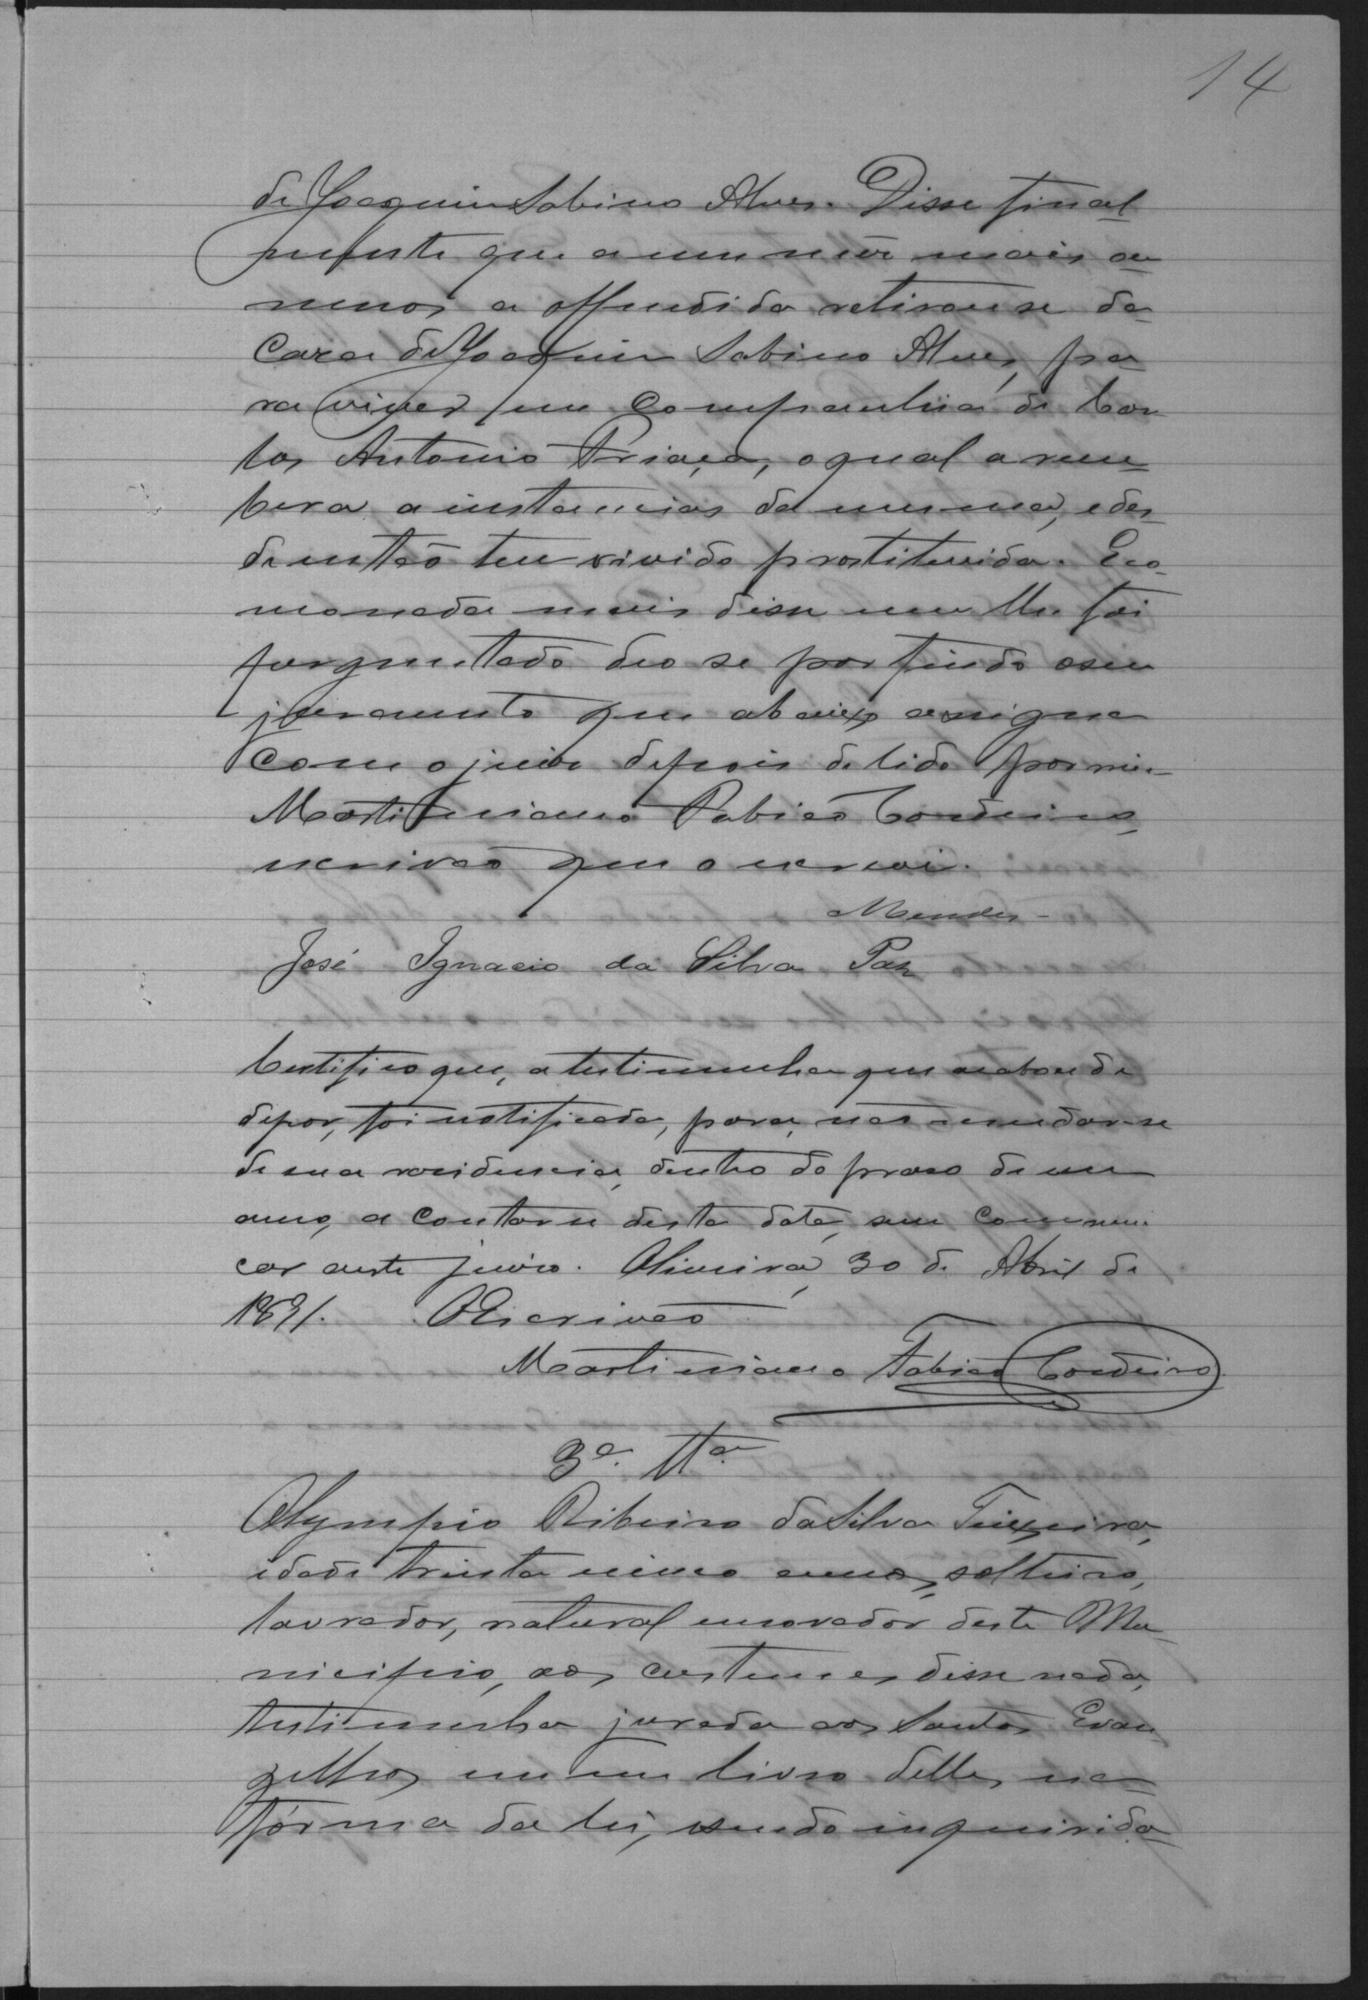 14
de Joaquim Sabino Alves. Disse final
mente que a um mez mais ou
menos a offendida retirou-se da
Caza de Joaquim Sabino Alves, pa
ra viver em Companhia de Car
los Antonio, o qual a rece
bera a instancias da mesma, e des
de então tem vivido prostituida. E co
mo nada mais disse nem lhe foi
perguntado deo se por findo o seu
juramento que abaixo assigna
com o juiz depois de lido por mim
Martiniano Fabião Cordeiro,
escrivão que o escrevi.
Mendes
José Ignacio da Silva Paz
Certifico que, a testimunha que acabou de
depor, foi notificada, para, não mudar-se
de sua residencia, dentro do praso de um
anno, a contar-se desta data, sem commu
car a este juizo. Oliveira, 30 de Abril de
1891. O Escrivão
Martiniano Fabião Cordeiro
3ª. Ttª.
Olympio Ribeiro da Silva Teixeira,
idade trinta cinco annos, solteiro,
lavrador, natural e morador deste Mu
nicipio, aos custumes disse nada,
testimunha jurada aos Santos Evan
gelhos em um livro delles, na
fórma da lei, e sendo inquirida